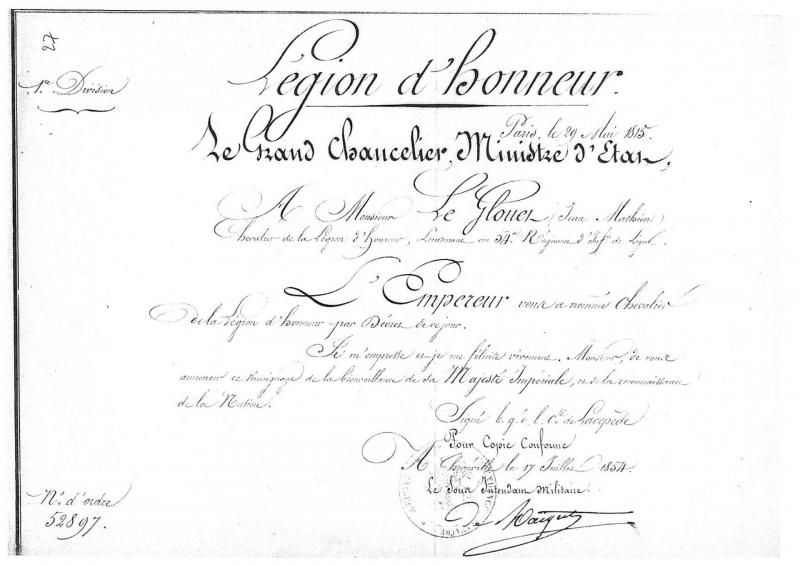 27
1.re Division
Légion d'honneur.
Paris, le 29 Mai 1815.
Le Grand Chancelier, Ministre d'Etat,
A Monsieur Le Glouet (Jean Mathieu)
Chevalier de la Légion d'honneur, Lieutenant au 54.e Régiment d'Inf.ie de Ligne.
L'Empereur vous a nommé Chevalier
de la Légion d'honneur par Décret de ce jour.
Je m'empresse et je me félicite vivement, Monsieur, de vous
annoncer ce témoignage de la bienveillance de Sa Majesté Impériale, et de la reconnaissance
de la Nation.
Signé b. g. é. l. c.te de Lacepède
Pour Copie Conforme
A le 17 Juillet 1854
Le Sous Intendant Militaire
N.o d'ordre
52897.